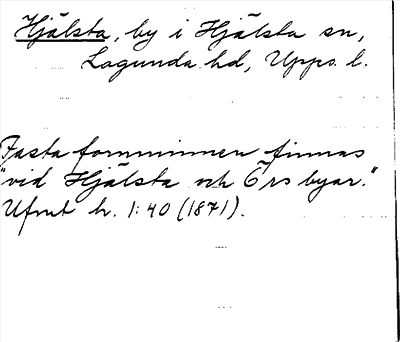 Hjälsta, by i Hjälsta sn,
Lagunda hd, Upps. l.
Fasta fornminnen finnas
"vid Hjälsta och Örs byar."
Ufmt h. 1:40 (1871).